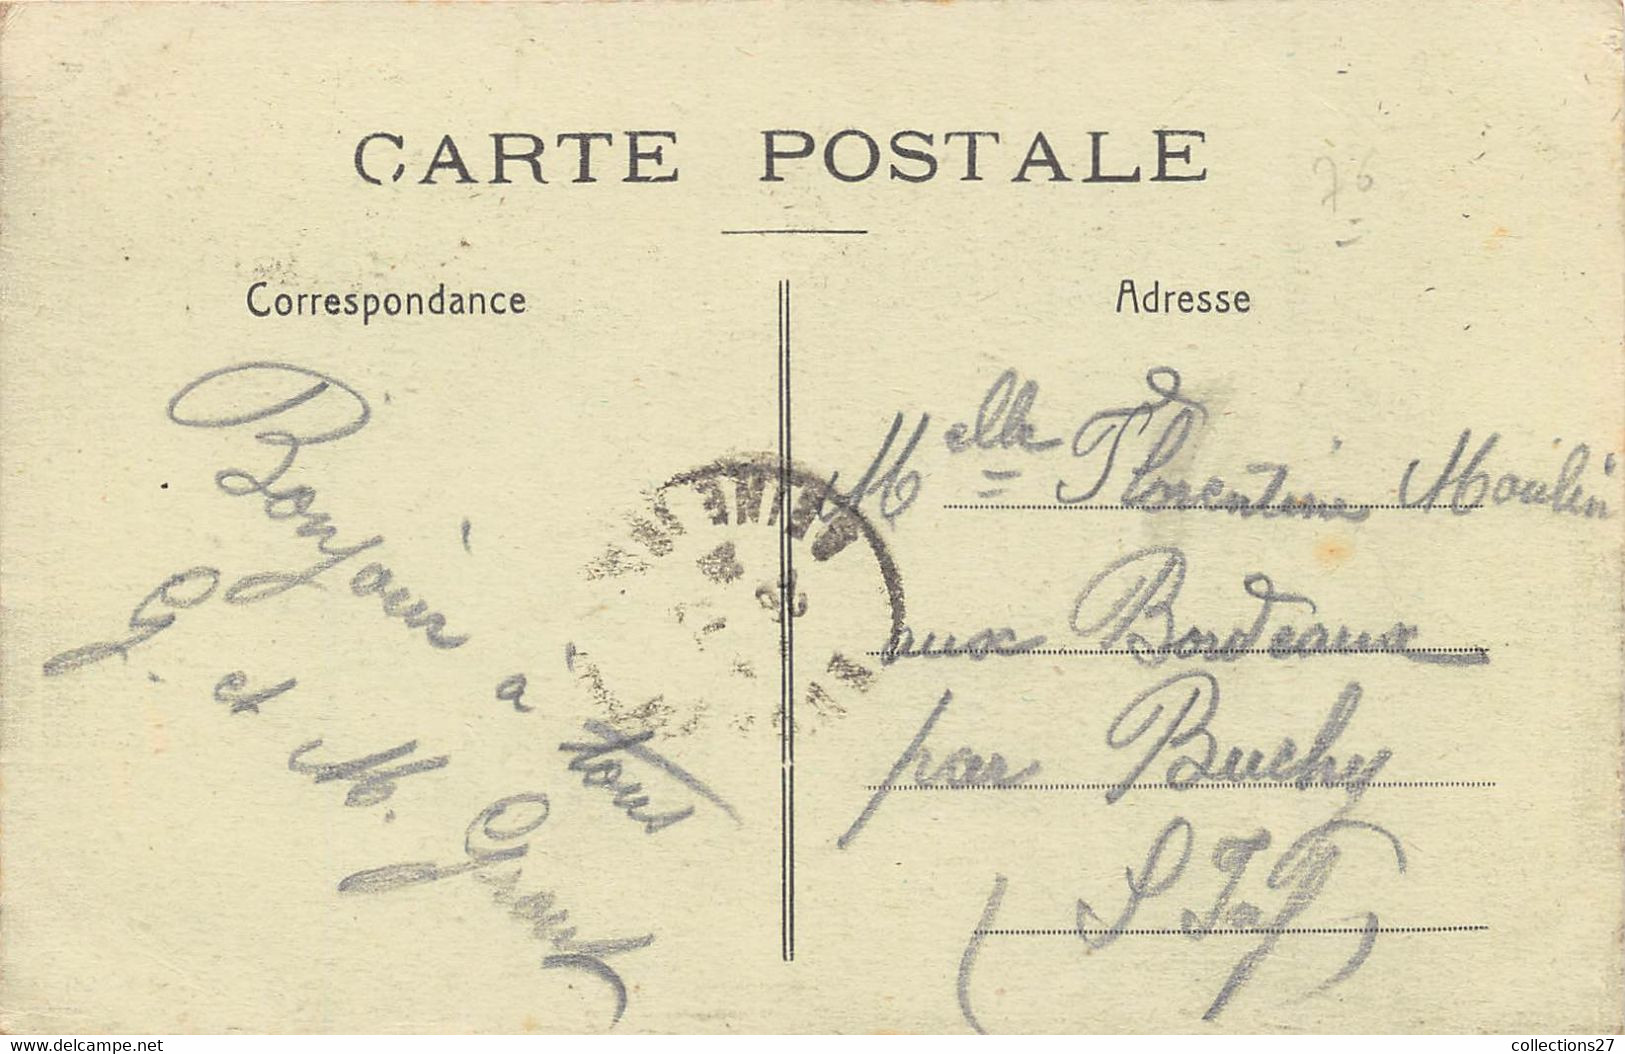 CARTE POSTALE
76
Correspondance
Bonjour a tous
G. et M.
Adresse
Melle Florentine Moulin
aux Bordeaux
par Buchy
(S Inf)
delcampe.net
collections27